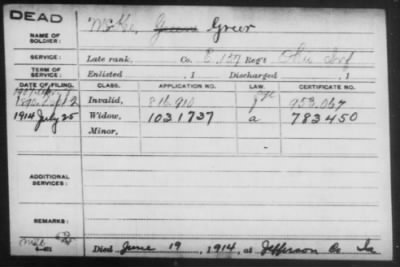 DEAD
NAME OF SOLDIER: McKee, Greer
SERVICE: Late rank, Co. E, 157 Reg't Ohio Inf
TERM OF SERVICE: Enlisted , 1 Discharged , 1
DATE OF FILING. CLASS. APPLICATION NO. LAW. CERTIFICATE NO.
Invalid, 816,910 953,067
1914 July 25 Widow, 1031737 a 783450
Minor,
ADDITIONAL SERVICES:
REMARKS:
Died June 19, 1914, at Jefferson Co Ia